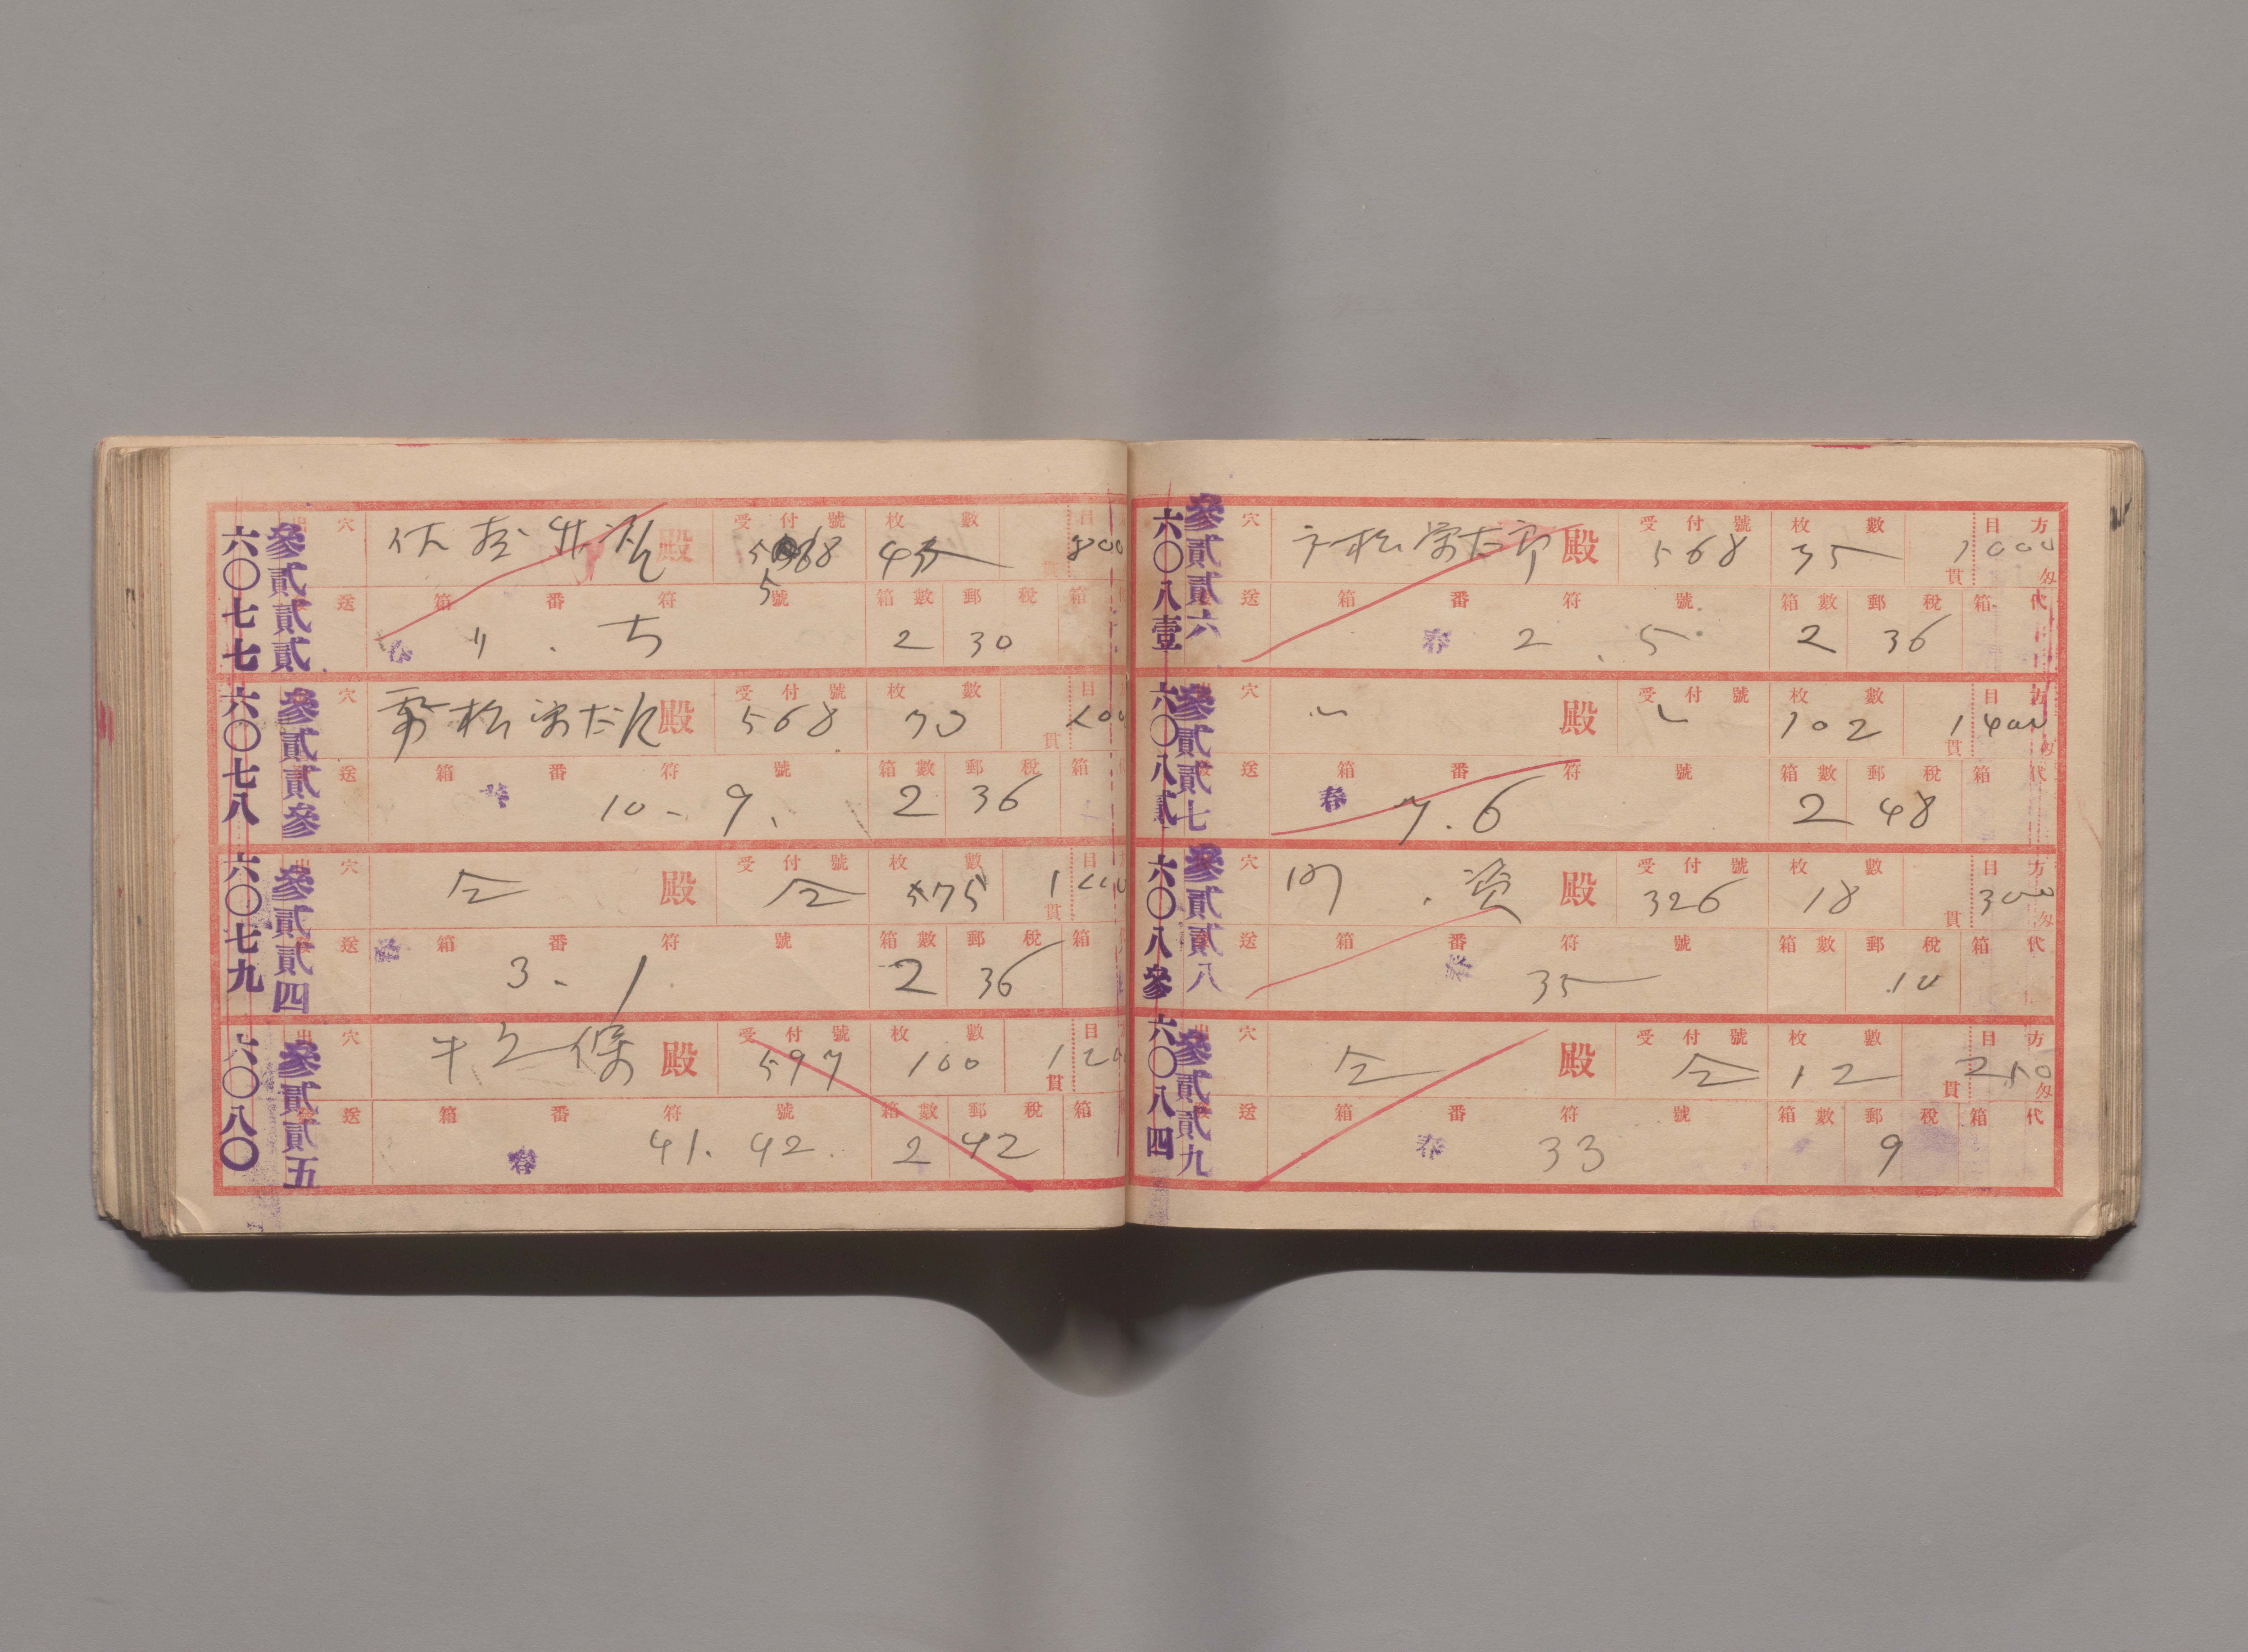 六〇七七
參貳貳貳
出 穴 殿 受付號 568 枚數 目 800
貫
送 箱番符號 箱數 2 郵稅 30 箱
春
六〇七八
參貳貳參
穴 松 殿 受付號 568 枚數 70 目
貫
送 箱番符號 10. 9. 箱數 2 郵稅 36 箱
春
六〇七九
參貳貳四
出 穴 仝 殿 受付號 仝 枚數 75 目 1
貫
送 箱番符號 3. 1 箱數 2 郵稅 36 箱
春
六〇八〇
參貳貳五
出 穴 殿 受付號 597 枚數 100 目 120
貫
送 箱番符號 41. 42. 箱數 2 郵稅 42 箱
春
六〇八壹
參貳貳六
穴 松 殿 受付號 568 枚數 35 目方 1000
貫 匁
送 箱番符號 2. 5. 箱數 2 郵稅 36 箱代
春
六〇八貳
參貳貳七
穴 殿 受付號 枚數 102 目方 1400
貫 匁
送 箱番符號 7. 6 箱數 2 郵稅 48 箱代
春
六〇八參
參貳貳八
穴 殿 受付號 326 枚數 18 目方 300
貫 匁
送 箱番符號 35 箱數 郵稅 10 箱代
春
六〇八四
參貳貳九
出 穴 仝 殿 受付號 仝 枚數 12 目方 250
貫 匁
送 箱番符號 33 箱數 郵稅 9 箱代
春